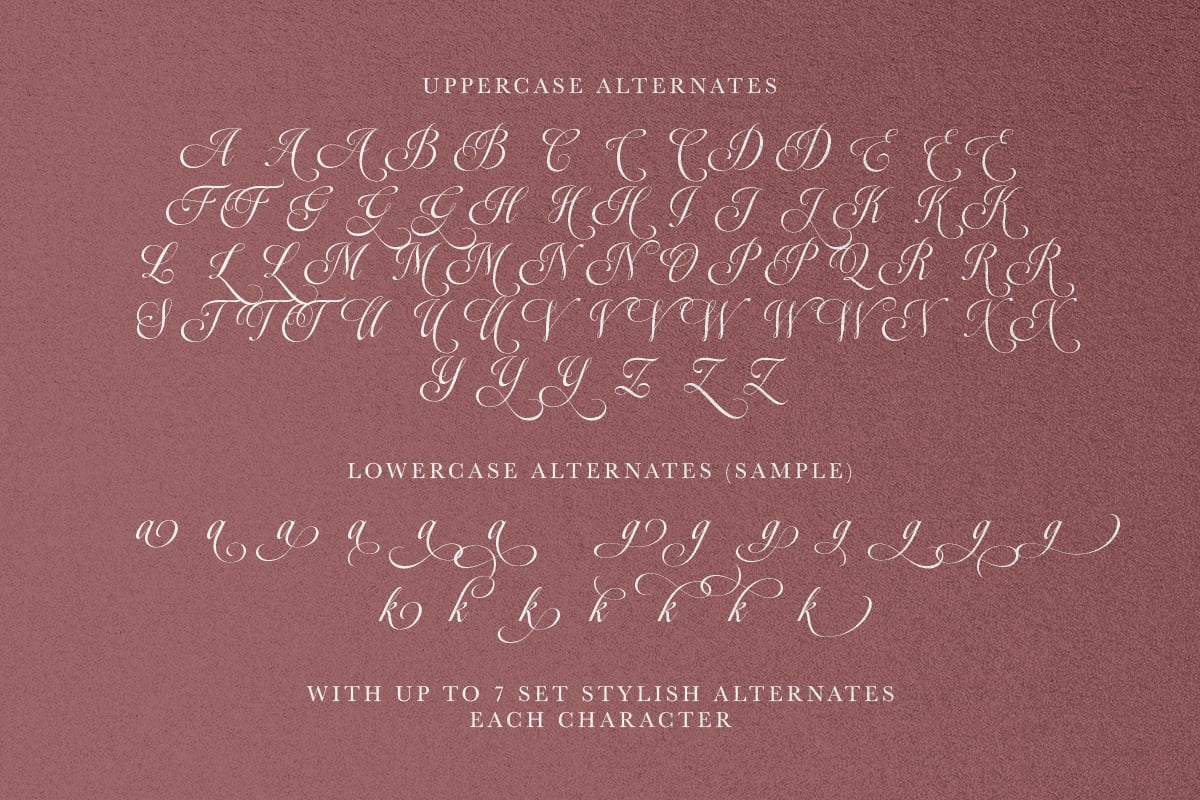 UPPERCASE ALTERNATES
A A A B B C C C D D E E E
F F G G G H H H I I J K K K
L L L M M M N N O P P Q R R R
S T T T U U U V V V W W W X X X
Y Y Y Z Z Z
LOWERCASE ALTERNATES (SAMPLE)
a a a a a a g g g g g g g
k k k k k k k
WITH UP TO 7 SET STYLISH ALTERNATES
EACH CHARACTER